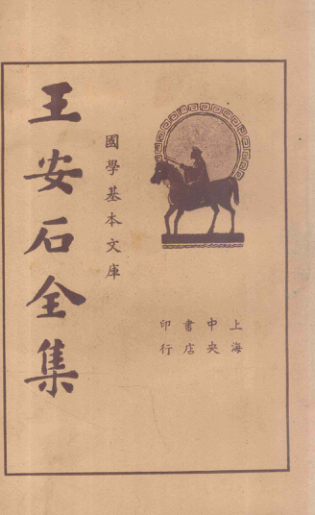 王安石全集
國學基本文庫
上海
中央
書店
印行